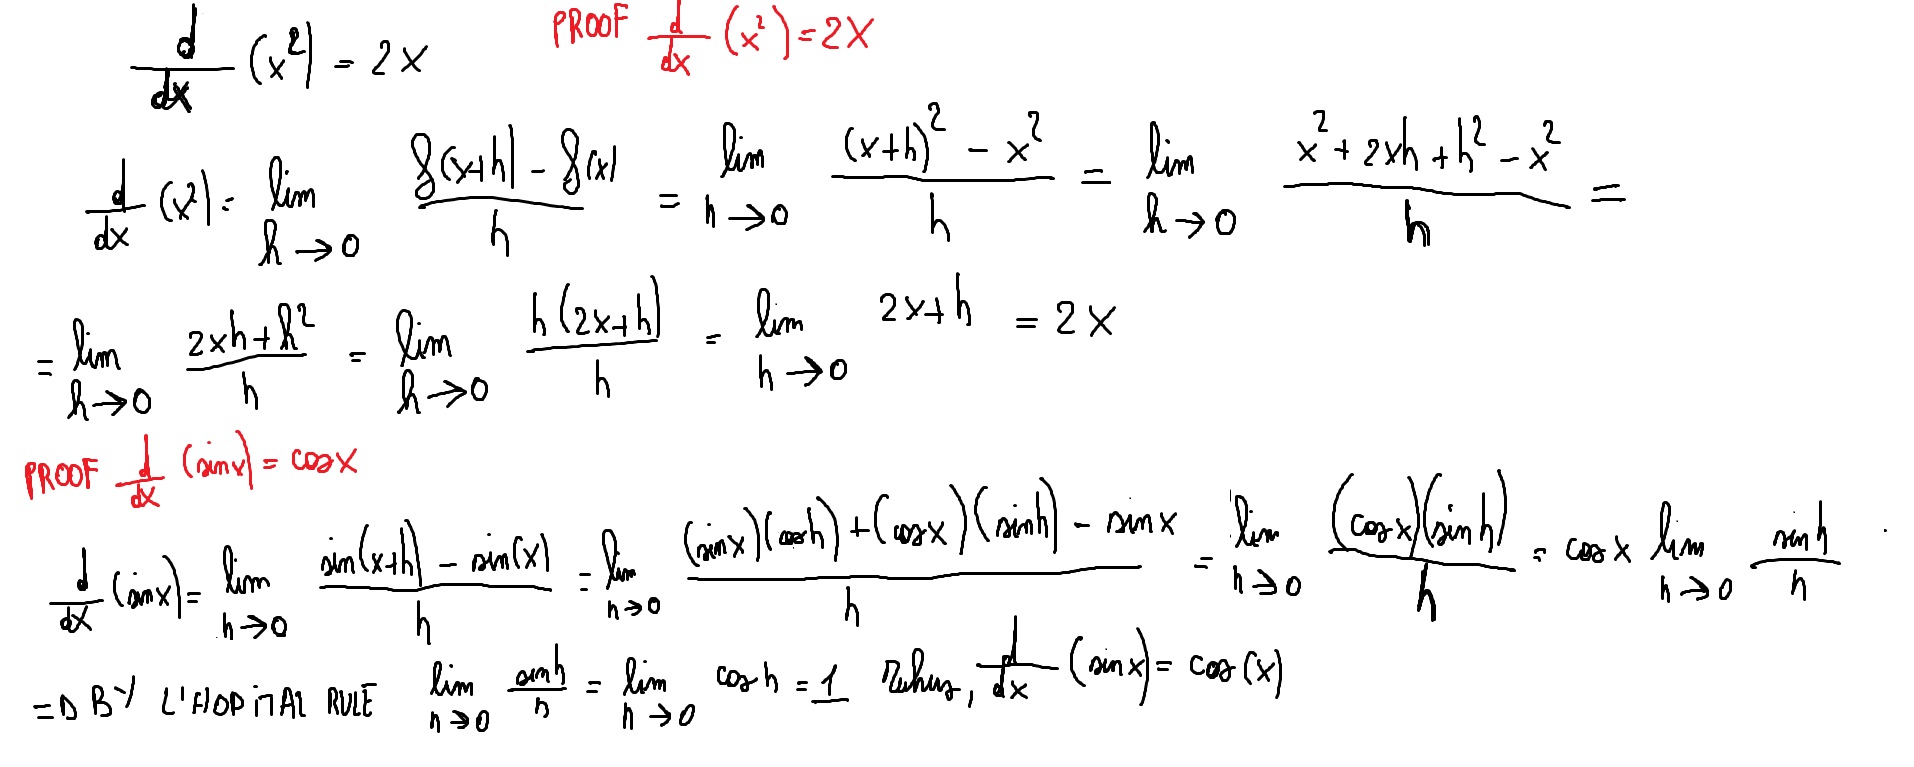 d/dx (x²) = 2x PROOF d/dx (x²) = 2X
d/dx (x²) = lim h→0 (f(x+h) - f(x))/h = lim h→0 ((x+h)² - x²)/h = lim h→0 (x² + 2xh + h² - x²)/h =
= lim h→0 (2xh + h²)/h = lim h→0 h(2x+h)/h = lim h→0 2x+h = 2x
PROOF d/dx (sinx) = cosx
d/dx (sinx) = lim h→0 (sin(x+h) - sin(x))/h = lim h→0 ((sinx)(cosh) + (cosx)(sinh) - sinx)/h = lim h→0 (cosx)(sinh)/h = cosx lim h→0 sinh/h
=D BY L'HOPITAL RULE lim h→0 sinh/h = lim h→0 cosh = 1 , d/dx (sinx) = cos(x)